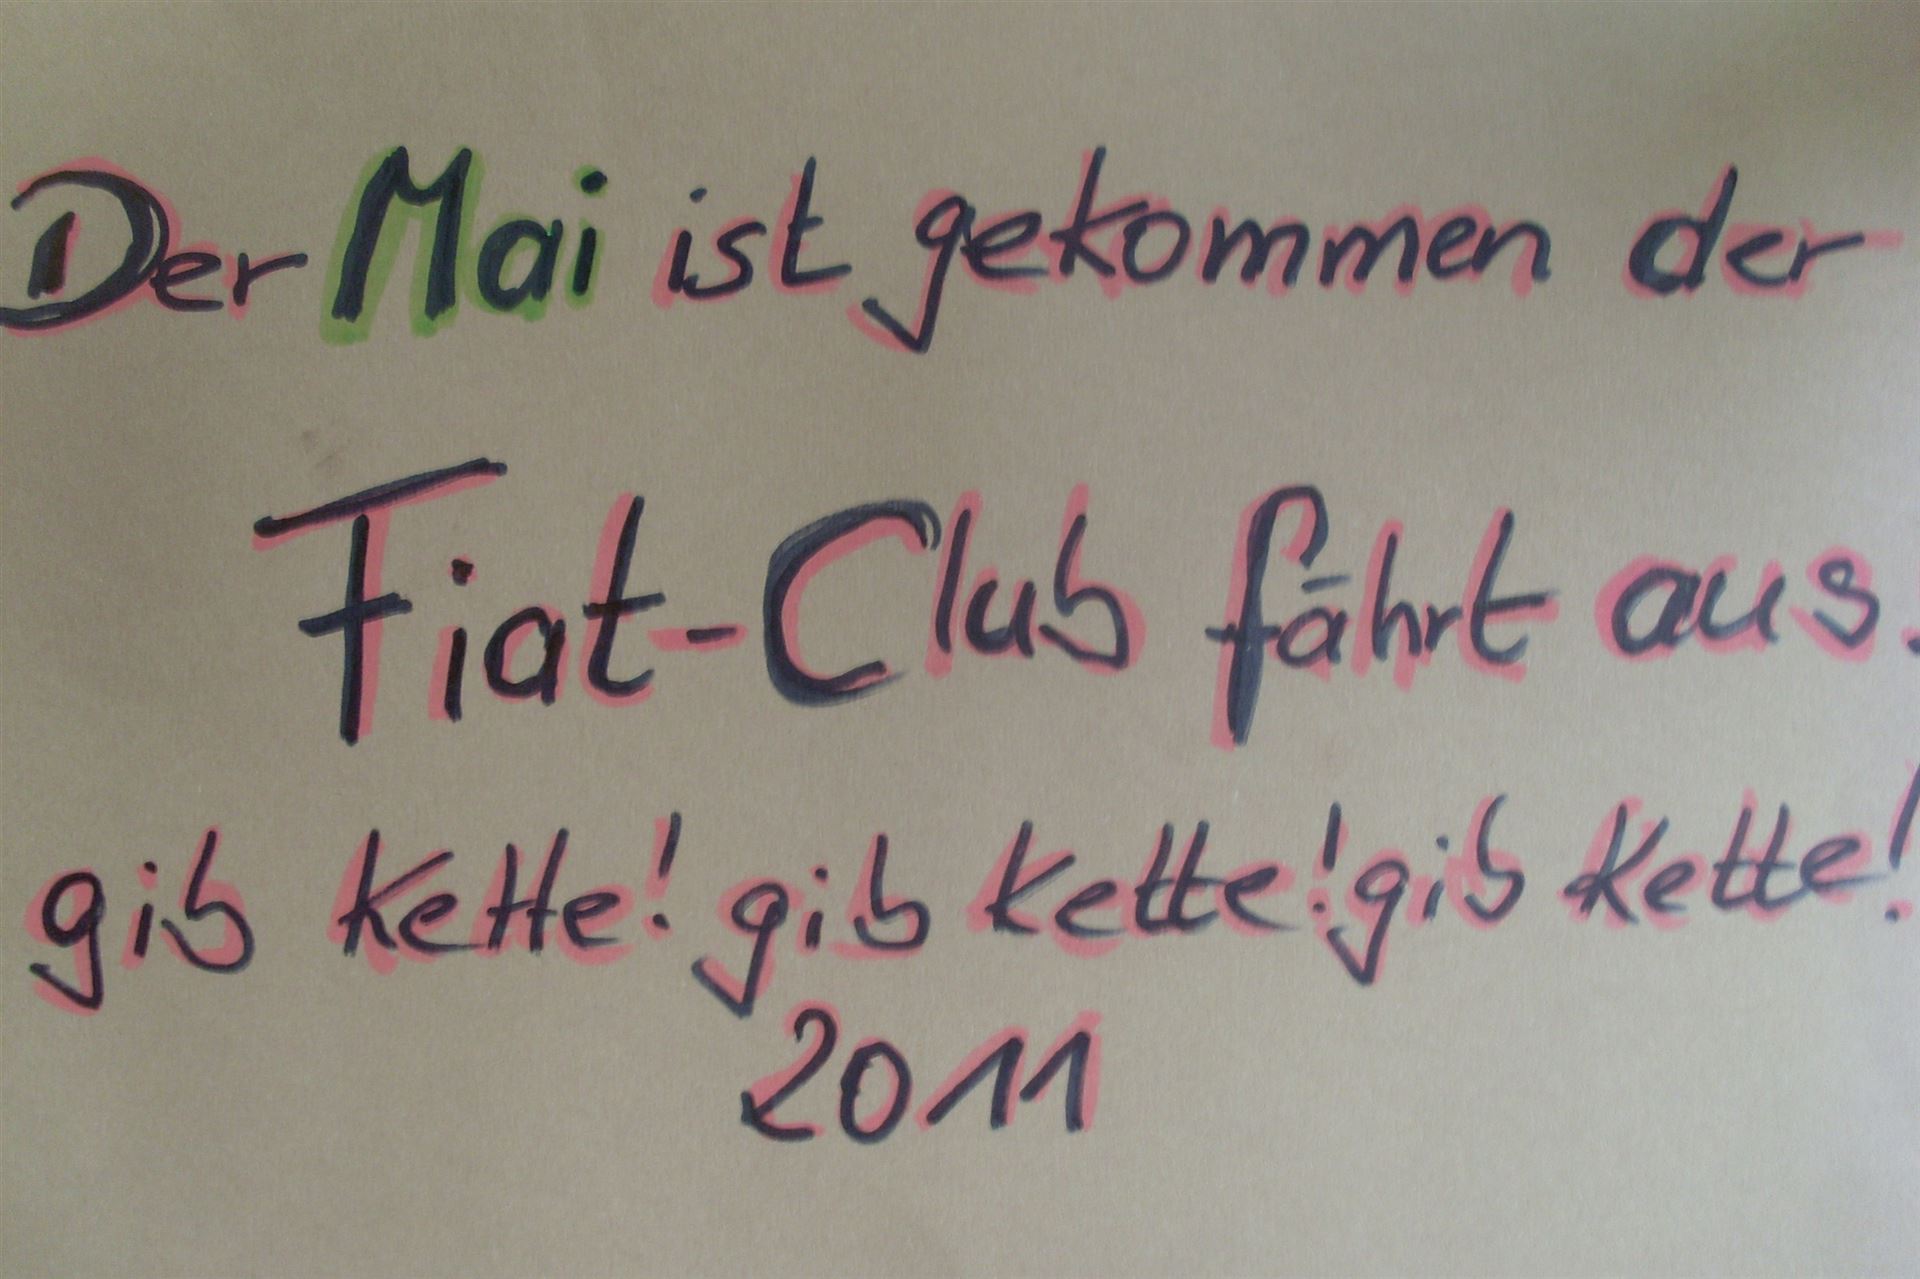 Der Mai ist gekommen der
Fiat-Club fährt aus.
gib kette! gib kette! gib kette!
2011